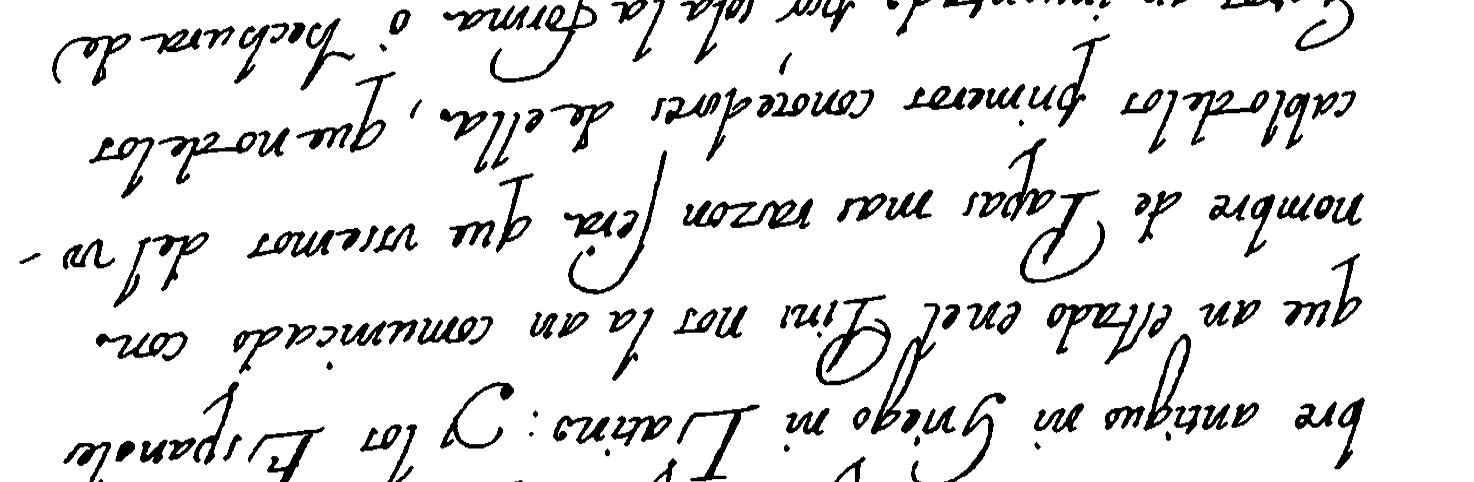 bre antiguo ni Griego ni Latino: Y los Espanoles
que an estado enel Piru nos la an comunicado con
nombre de Papas mas razon sera que usemos del vo-
cablo delos primeros conocedores de ella, que no delos
an inventado por sola la forma ó hechura de